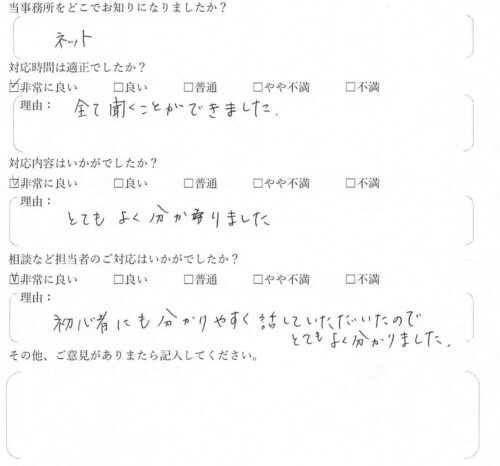 当事務所をどこでお知りになりましたか？
ネット
対応時間は適正でしたか？
☑非常に良い □良い □普通 □やや不満 □不満
理由：全て聞くことができました.
対応内容はいかがでしたか？
☑非常に良い □良い □普通 □やや不満 □不満
理由：
とてもよく分かりました
相談など担当者のご対応はいかがでしたか？
☑非常に良い □良い □普通 □やや不満 □不満
理由：
初心者にも分かりやすく話していただいたので
とてもよく分かりました.
その他、ご意見がありまたら記入してください。